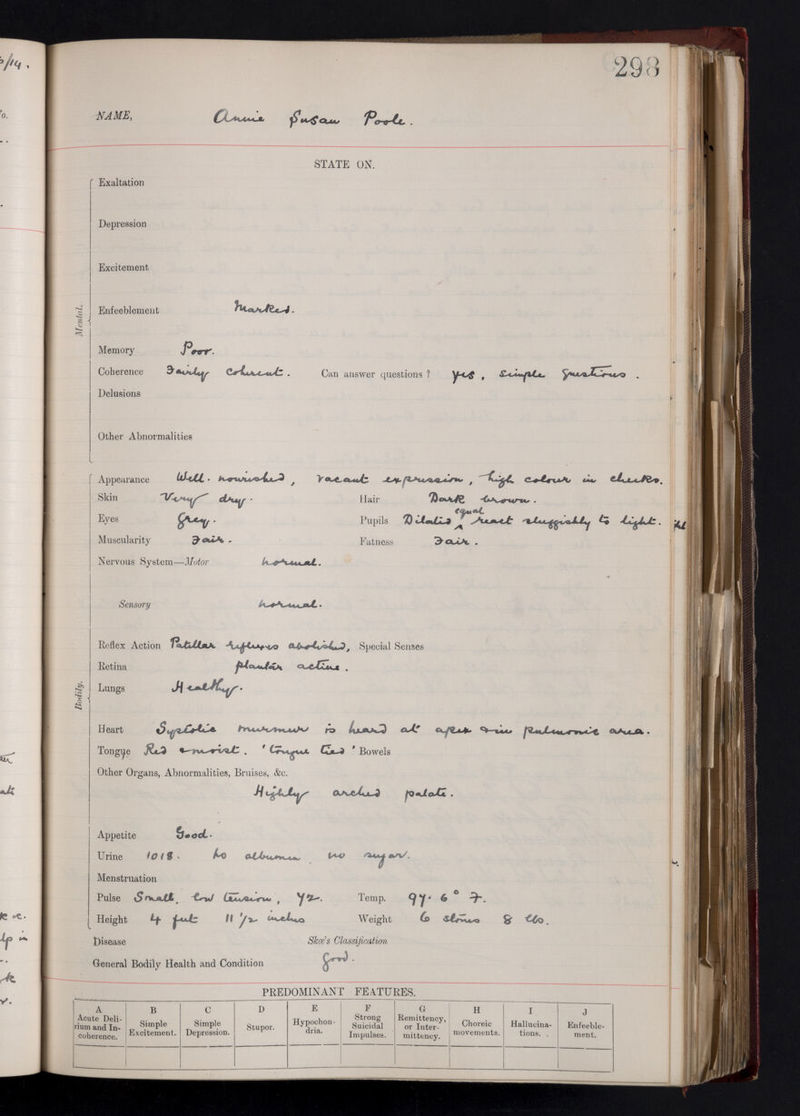 298
NAME, Annie Susan Poole.
STATE ON.
Mental.
Exaltation
Depression
Excitement
Enfeeblement Marked.
Memory Poor.
Coherence Fairly Coherent. Can answer questions? yes, simple questions.
Delusions
Other Abnormalities
Bodily.
Appearance Well-nourished, vacant expression, high colour in cheeks.
Skin Very dry. Hair Dark brown.
equal
Eyes Grey. Pupils Dilated ‸ react sluggishly to light.
Muscularity Fair. Fatness Fair.
Nervous System—Motor normal.
Sensory normal.
Reflex Action Patellar reflexes abolished, Special Senses
Retina plantar active.
Lungs Healthy.
Heart Systolic murmur is heard at apex & in pulmonic area.
Tongue Red & moist. 'tongue tied' Bowels
Other Organs, Abnormalities, Bruises, &c.
Highly arched palate.
Appetite Good.
Urine 1018. no albumen no sugar.
Menstruation
Pulse Small, low tension, 72. Temp. 97·6° F.
Height 4 feet 11 1/2 inches Weight 6 stones 8 lbs.
Disease Skae's Classification
General Bodily Health and Condition Good.
PREDOMINANT FEATURES.
A B C D E F G H I J
Acute Delirium and Incoherence. Simple Excitement. Simple Depression. Stupor. Hypochondria. Strong Suicidal Impulses. Remittency, or Intermittency. Choreic movements. Hallucinations. Enfeeblement.